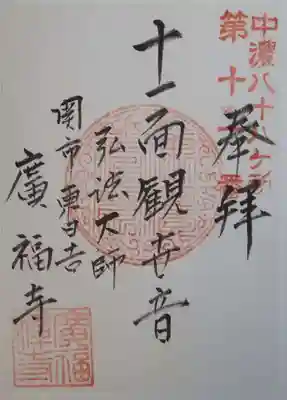 中濃八十八ヶ所
第十
奉拝
十一面観世音
弘法大師
関市東日吉
廣福寺
廣福寺